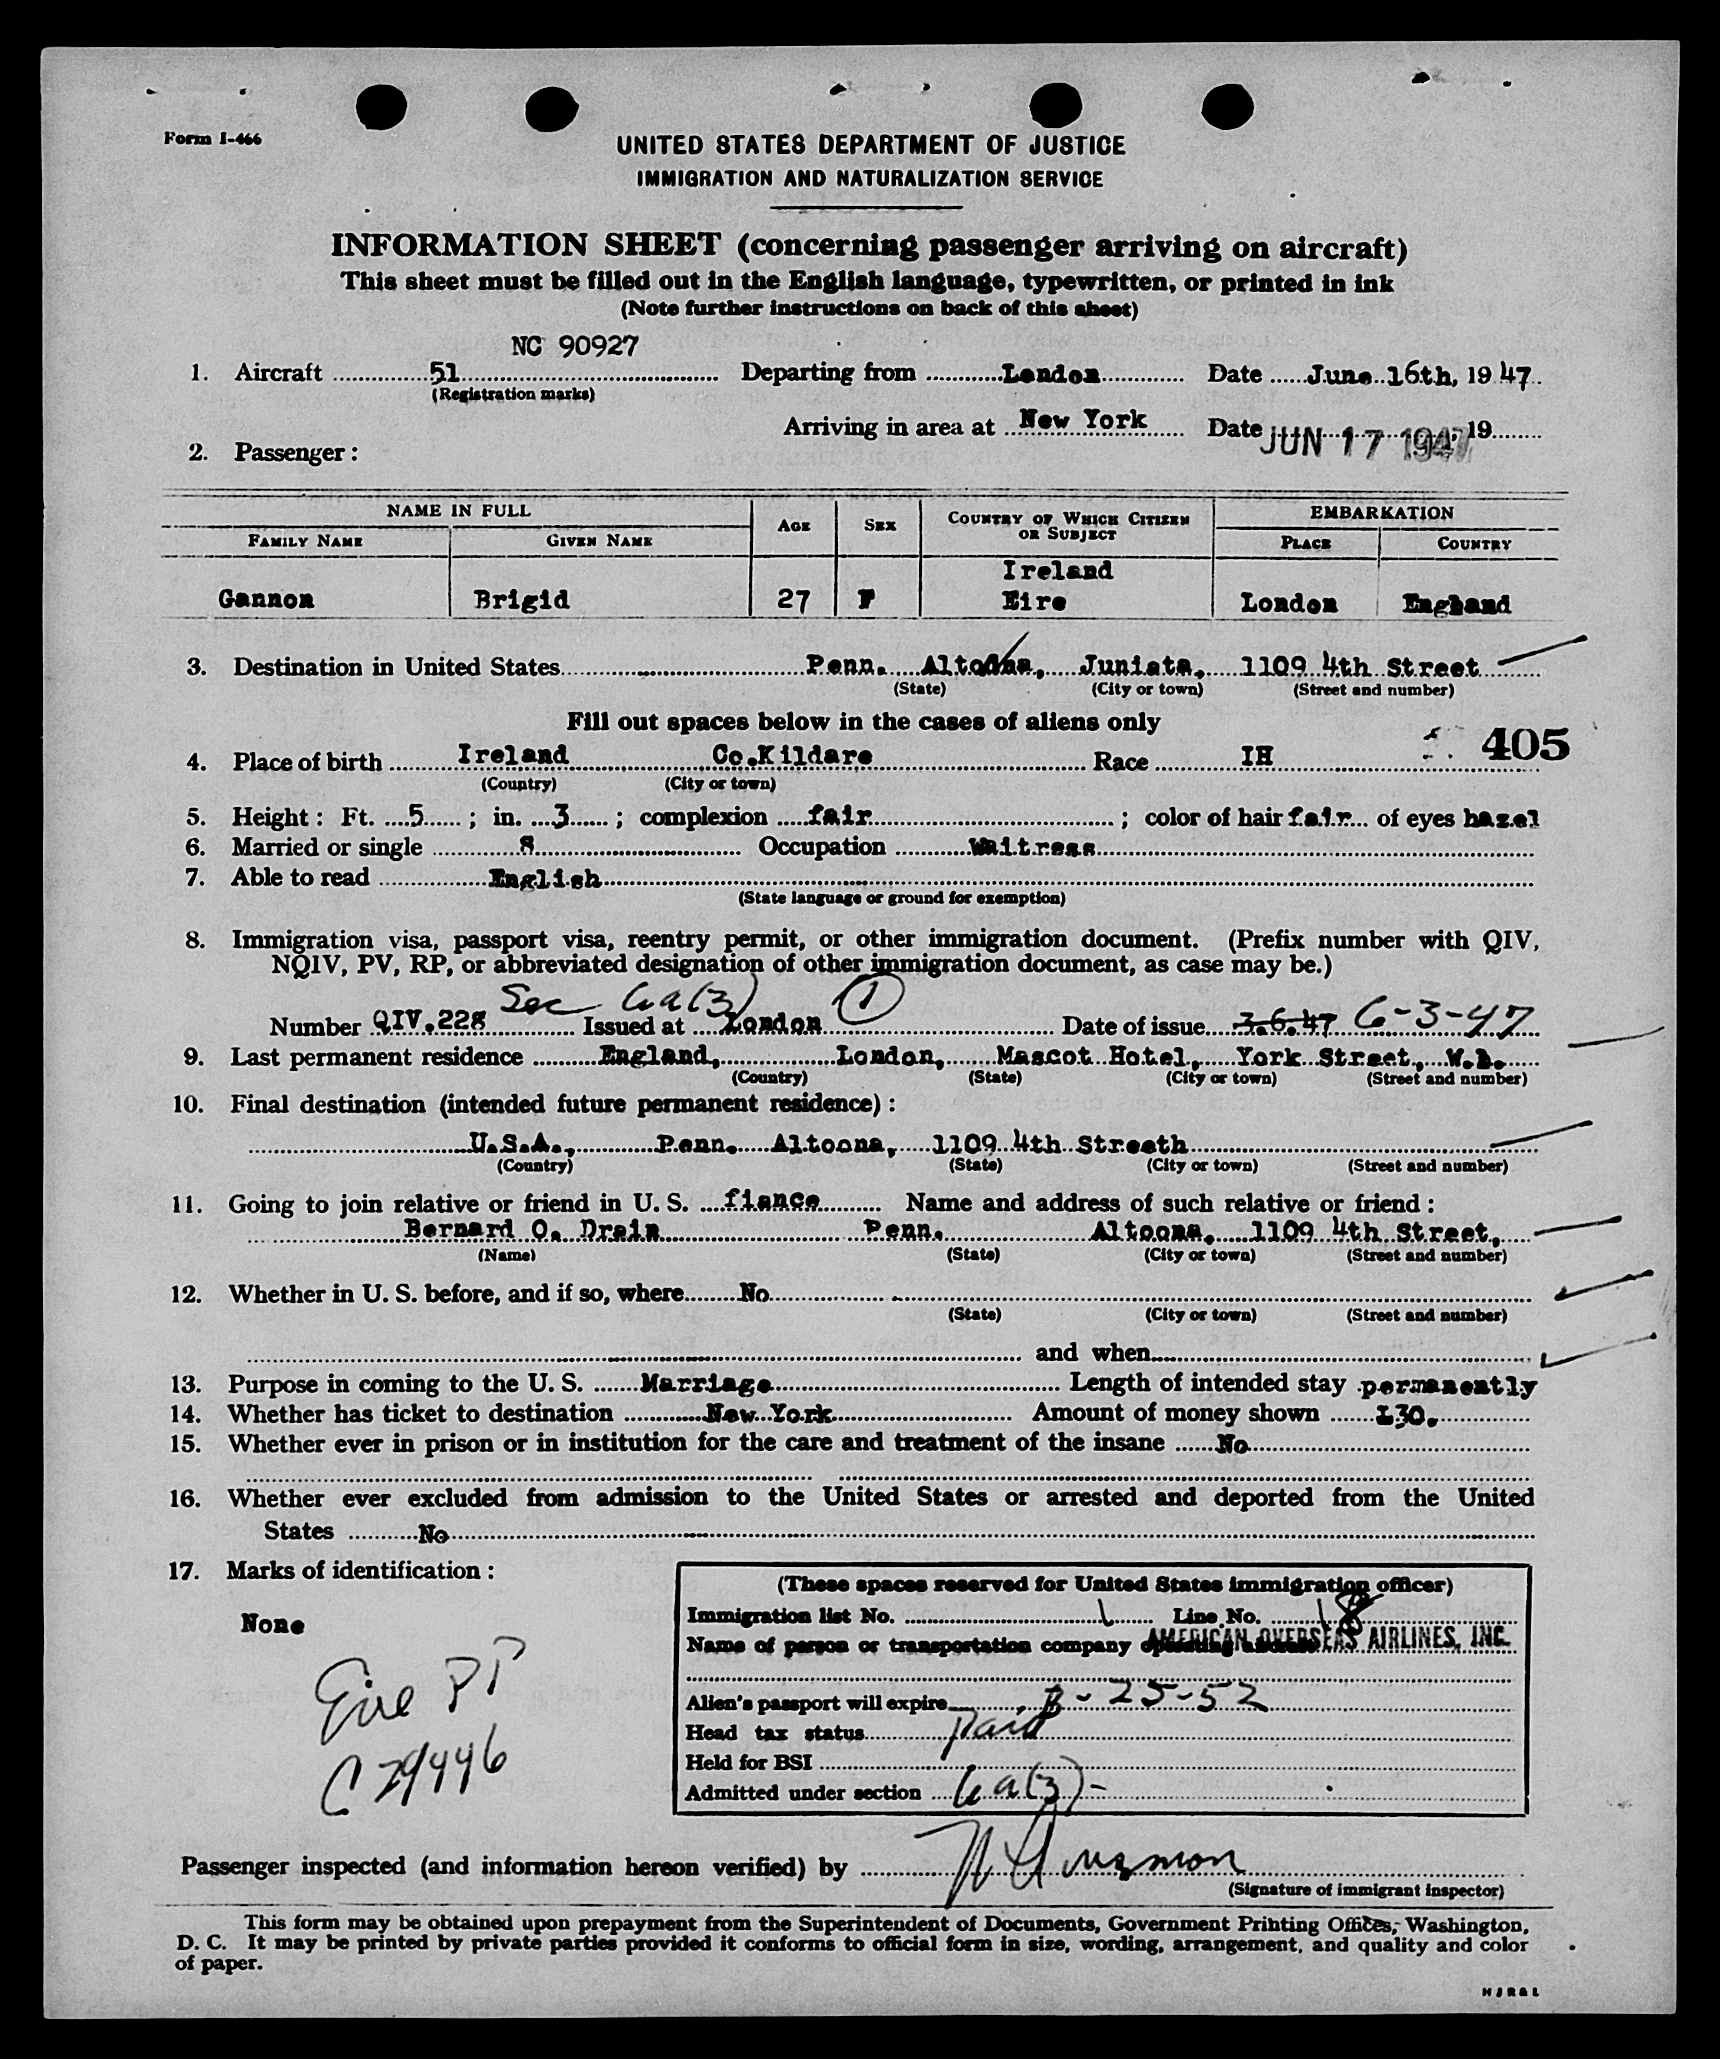 Form I-466
UNITED STATES DEPARTMENT OF JUSTICE
IMMIGRATION AND NATURALIZATION SERVICE
INFORMATION SHEET (concerning passenger arriving on aircraft)
This sheet must be filled out in the English language, typewritten, or printed in ink
(Note further instructions on back of this sheet)
NC 90927
1. Aircraft 51 Departing from London Date June 16th, 1947.
(Registration marks)
Arriving in area at New York Date JUN 17 1947, 19
2. Passenger:
NAME IN FULL AGE SEX COUNTRY OF WHICH CITIZEN OR SUBJECT EMBARKATION
FAMILY NAME GIVEN NAME PLACE COUNTRY
Ireland
Gannon Brigid 27 F Eire London England
3. Destination in United States Penn. Altoona, Juniata, 1109 4th Street
(State) (City or town) (Street and number)
Fill out spaces below in the cases of aliens only
405
4. Place of birth Ireland Co.Kildare Race IH
(Country) (City or town)
5. Height: Ft. 5; in. 3; complexion fair; color of hair fair of eyes hazel
6. Married or single S Occupation Waitress
7. Able to read English
(State language or ground for exemption)
8. Immigration visa, passport visa, reentry permit, or other immigration document. (Prefix number with QIV,
NQIV, PV, RP, or abbreviated designation of other immigration document, as case may be.)
Sec 6a(3) 1
Number QIV.228 Issued at London Date of issue 3.6.47 6-3-47
9. Last permanent residence England, London, Mascot Hotel, York Street, W.1.
(Country) (State) (City or town) (Street and number)
10. Final destination (intended future permanent residence):
U.S.A., Penn. Altoona, 1109 4th Streeth
(Country) (State) (City or town) (Street and number)
11. Going to join relative or friend in U. S. fiance Name and address of such relative or friend:
Bernard O. Drein Penn. Altoona, 1109 4th Street,
(Name) (State) (City or town) (Street and number)
12. Whether in U. S. before, and if so, where No
(State) (City or town) (Street and number)
and when
13. Purpose in coming to the U. S. Marriage Length of intended stay permanently
14. Whether has ticket to destination New York Amount of money shown £30.
15. Whether ever in prison or in institution for the care and treatment of the insane No
16. Whether ever excluded from admission to the United States or arrested and deported from the United
States No
17. Marks of identification:
None
Eire PP
C 29446
(These spaces reserved for United States immigration officer)
Immigration list No. 1 Line No. 18
Name of person or transportation company operating aircraft AMERICAN OVERSEAS AIRLINES, INC.
Alien's passport will expire 3-25-52
Head tax status Paid
Held for BSI
Admitted under section 6a(3)-
Passenger inspected (and information hereon verified) by
(Signature of immigrant inspector)
This form may be obtained upon prepayment from the Superintendent of Documents, Government Printing Offices, Washington,
D. C. It may be printed by private parties provided it conforms to official form in size, wording, arrangement, and quality and color
of paper.